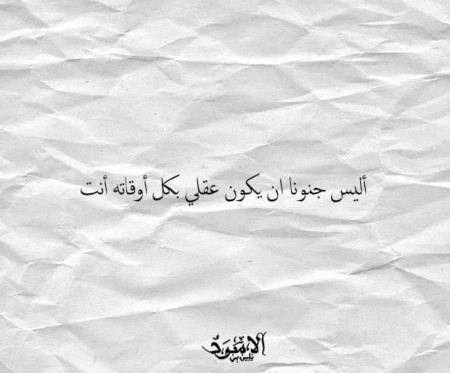 أليس جنونا ان يكون عقلي بكل أوقاته أنت
الاسود
يليق بي